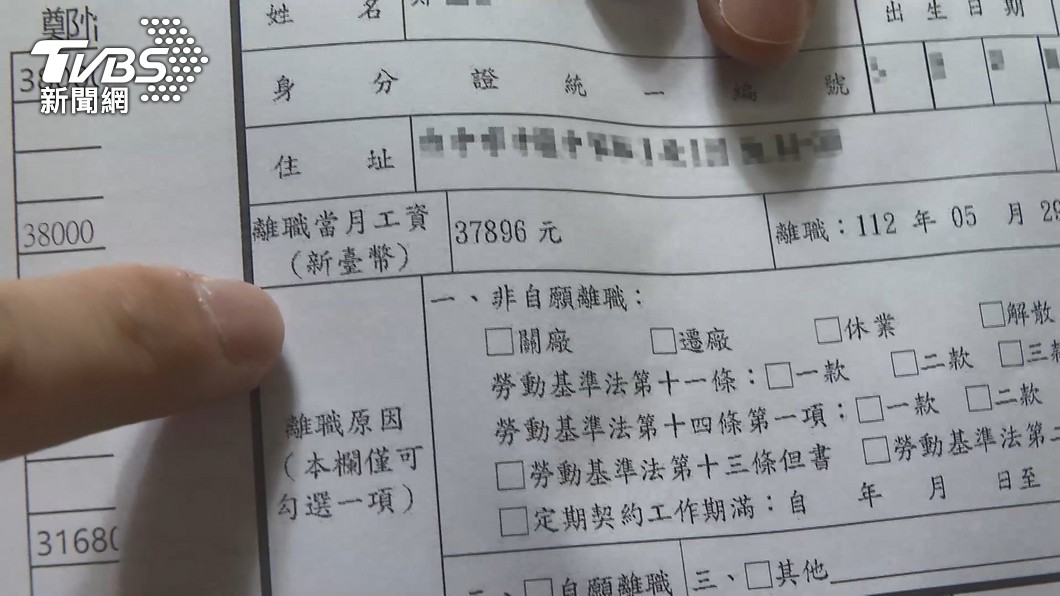 姓 名
出 生 日 期
TVBS
新聞網
身 分 證 統 一 編 號
住 址
38000
離職當月工資
(新臺幣)
37896 元
離職：112 年 05 月 29
一、非自願離職：
□關廠 □遷廠 □休業 □解散
勞動基準法第十一條：□一款 □二款 □三款
勞動基準法第十四條第一項：□一款 □二款
□勞動基準法第十三條但書 □勞動基準法第
□定期契約工作期滿：自 年 月 日至
離職原因
(本欄僅可
勾選一項)
31680
二、□自願離職 三、□其他